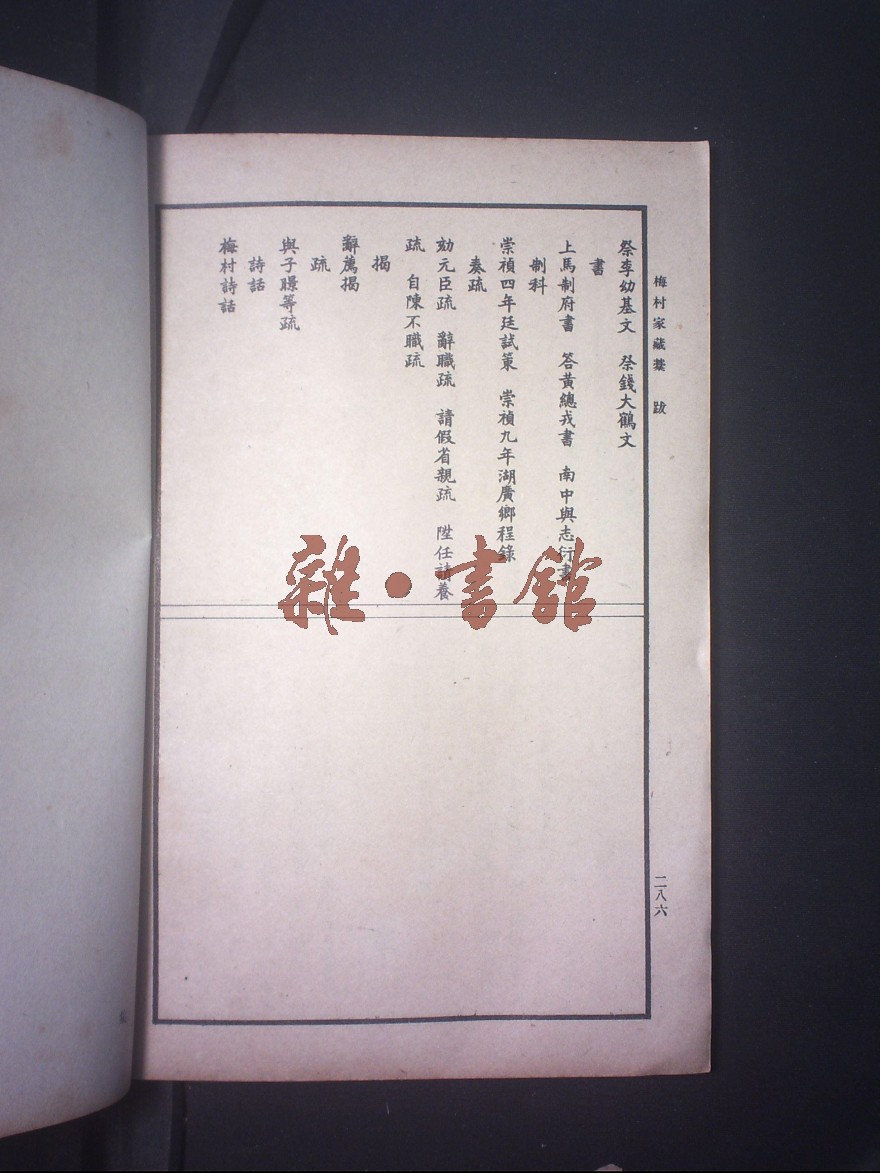 梅村家藏藁 跋
二八六
祭李幼基文 祭錢大鶴文
書
上馬制府書 答黃總戎書 南中與志衍書
制科
崇禎四年廷試策 崇禎九年湖廣鄉程錄
奏疏
劾元臣疏 辭職疏 請假省親疏 陞任請養
疏 自陳不職疏
揭
辭薦揭
疏
與子暻等疏
詩話
梅村詩話
雜·書館